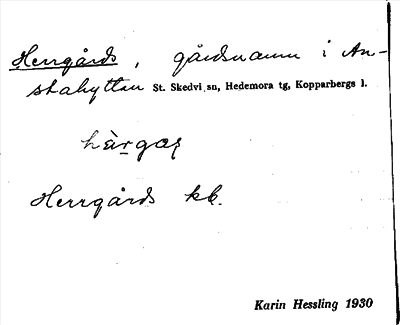 Herrgårds, gårdsnamn i An-
shahyttan St. Skedvi sn, Hedemora tg, Kopparbergs l.
hàrgaṣ
Herrgårds kb.
Karin Hessling 1930